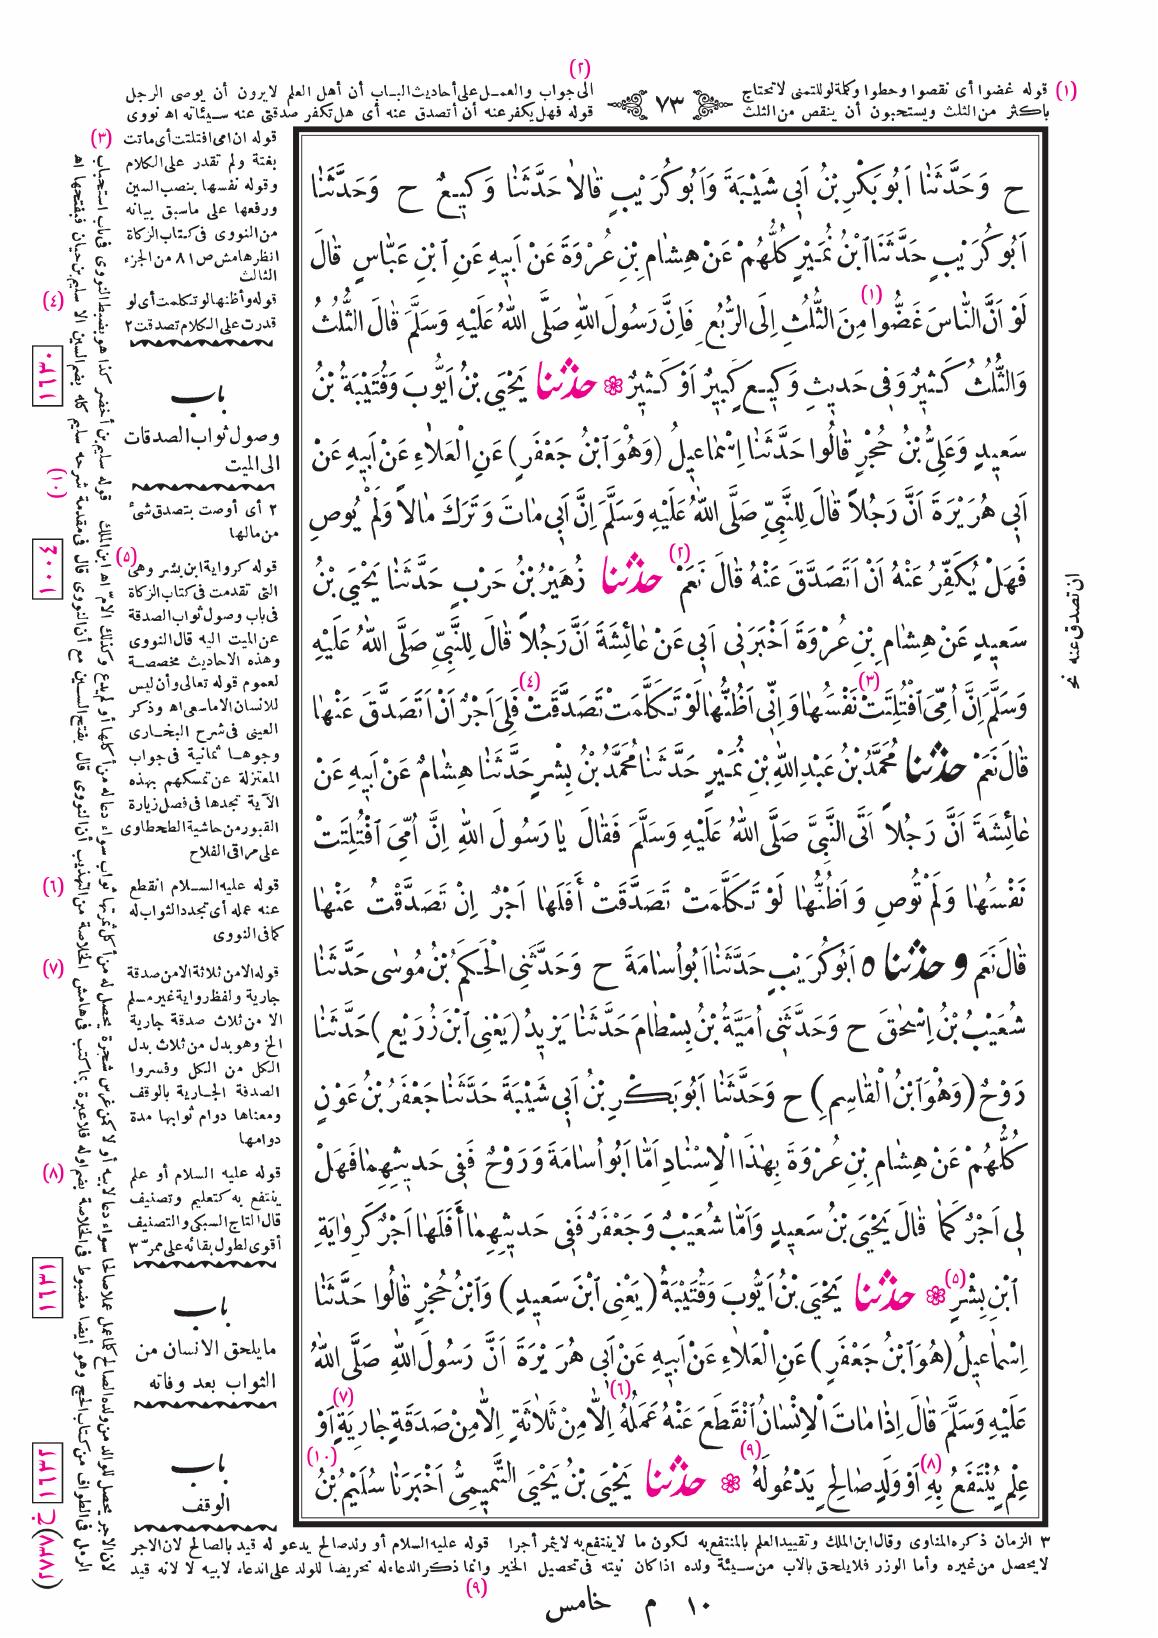 (٢)
(١) قوله غضوا أى نقصوا وحطوا وكلمة لو للتمنى لا تحتاج
الى جواب والعمل على أحاديث الباب أن أهل العلم لا يرون أن يوصى الرجل
باكثر من الثلث ويستحبون أن ينقص من الثلث
قوله فهل يكفر عنه أن أتصدق عنه أى هل تكفر صدقتى عنه سيئاته اه نووى
٧٣
ح وَحَدَّثَنَا اَبُوبَكْرِ بْنُ اَبِي شَيْبَةَ وَاَبُوكُرَيْبٍ قَالَا حَدَّثَنَا وَكِيعٌ ح وَحَدَّثَنَا
اَبُوكُرَيْبٍ حَدَّثَنَا ابْنُ نُمَيْرٍ كُلُّهُمْ عَنْ هِشَامِ بْنِ عُرْوَةَ عَنْ اَبِيهِ عَنِ ابْنِ عَبَّاسٍ قَالَ
لَوْ اَنَّ النَّاسَ غَضُّوا (١) مِنَ الثُّلُثِ اِلَى الرُّبُعِ فَاِنَّ رَسُولَ اللهِ صَلَّى اللهُ عَلَيْهِ وَسَلَّمَ قَالَ الثُّلُثُ
وَالثُّلُثُ كَثِيرٌ وَفِي حَدِيثِ وَكِيعٍ كَبِيرٌ اَوْ كَثِيرٌ حدثنا يَحْيَى بْنُ اَيُّوبَ وَقُتَيْبَةُ بْنُ
سَعِيدٍ وَعَلِيُّ بْنُ حُجْرٍ قَالُوا حَدَّثَنَا اِسْمَاعِيلُ (وَهُوَ ابْنُ جَعْفَرٍ) عَنِ الْعَلَاءِ عَنْ اَبِيهِ عَنْ
اَبِي هُرَيْرَةَ اَنَّ رَجُلاً قَالَ لِلنَّبِيِّ صَلَّى اللهُ عَلَيْهِ وَسَلَّمَ اِنَّ اَبِي مَاتَ وَتَرَكَ مَالاً وَلَمْ يُوصِ
فَهَلْ يُكَفِّرُ عَنْهُ اَنْ اَتَصَدَّقَ عَنْهُ قَالَ نَعَمْ (٢) حدثنا زُهَيْرُ بْنُ حَرْبٍ حَدَّثَنَا يَحْيَى بْنُ
سَعِيدٍ عَنْ هِشَامِ بْنِ عُرْوَةَ اَخْبَرَنِي اَبِي عَنْ عَائِشَةَ اَنَّ رَجُلاً قَالَ لِلنَّبِيِّ صَلَّى اللهُ عَلَيْهِ
وَسَلَّمَ اِنَّ اُمِّيَ افْتُلِتَتْ (٣) نَفْسُهَا وَاِنِّي اَظُنُّهَا لَوْ تَكَلَّمَتْ تَصَدَّقَتْ (٤) فَلِيَ اَجْرٌ اَنْ اَتَصَدَّقَ عَنْهَا
قَالَ نَعَمْ حدثنا مُحَمَّدُ بْنُ عَبْدِ اللهِ بْنِ نُمَيْرٍ حَدَّثَنَا مُحَمَّدُ بْنُ بِشْرٍ حَدَّثَنَا هِشَامٌ عَنْ اَبِيهِ عَنْ
عَائِشَةَ اَنَّ رَجُلاً اَتَى النَّبِيَّ صَلَّى اللهُ عَلَيْهِ وَسَلَّمَ فَقَالَ يَا رَسُولَ اللهِ اِنَّ اُمِّيَ افْتُلِتَتْ
نَفْسُهَا وَلَمْ تُوصِ وَاَظُنُّهَا لَوْ تَكَلَّمَتْ تَصَدَّقَتْ أَفَلَهَا اَجْرٌ اِنْ تَصَدَّقْتُ عَنْهَا
قَالَ نَعَمْ وحدثناه اَبُوكُرَيْبٍ حَدَّثَنَا اَبُو اُسَامَةَ ح وَحَدَّثَنِي الْحَكَمُ بْنُ مُوسَى حَدَّثَنَا
شُعَيْبُ بْنُ اِسْحٰقَ ح وَحَدَّثَنِي اُمَيَّةُ بْنُ بِسْطَامَ حَدَّثَنَا يَزِيدُ (يَعْنِي ابْنَ زُرَيْعٍ) حَدَّثَنَا
رَوْحٌ (وَهُوَ ابْنُ الْقَاسِمِ) ح وَحَدَّثَنَا اَبُوبَكْرِ بْنُ اَبِي شَيْبَةَ حَدَّثَنَا جَعْفَرُ بْنُ عَوْنٍ
كُلُّهُمْ عَنْ هِشَامِ بْنِ عُرْوَةَ بِهٰذَا الْاِسْنَادِ اَمَّا اَبُو اُسَامَةَ وَرَوْحٌ فَفِي حَدِيثِهِمَا فَهَلْ
لِي اَجْرٌ كَمَا قَالَ يَحْيَى بْنُ سَعِيدٍ وَاَمَّا شُعَيْبٌ وَجَعْفَرٌ فَفِي حَدِيثِهِمَا أَفَلَهَا اَجْرٌ كَرِوَايَةِ
ابْنِ بِشْرٍ (٥) حدثنا يَحْيَى بْنُ اَيُّوبَ وَقُتَيْبَةُ (يَعْنِي ابْنَ سَعِيدٍ) وَابْنُ حُجْرٍ قَالُوا حَدَّثَنَا
اِسْمَاعِيلُ (هُوَ ابْنُ جَعْفَرٍ) عَنِ الْعَلَاءِ عَنْ اَبِيهِ عَنْ اَبِي هُرَيْرَةَ اَنَّ رَسُولَ اللهِ صَلَّى اللهُ
عَلَيْهِ وَسَلَّمَ قَالَ اِذَا مَاتَ الْاِنْسَانُ انْقَطَعَ عَنْهُ عَمَلُهُ (٦) اِلَّا مِنْ ثَلَاثَةٍ اِلَّا مِنْ صَدَقَةٍ جَارِيَةٍ (٧) اَوْ
عِلْمٍ يُنْتَفَعُ بِهِ (٨) اَوْ وَلَدٍ صَالِحٍ يَدْعُو لَهُ (٩) حدثنا يَحْيَى بْنُ يَحْيَى التَّمِيمِيُّ اَخْبَرَنَا سُلَيْمُ بْنُ (١٠)
ان تصدق عنه نخ
(٣) قوله ان امى افتلتت أى ماتت
بغتة ولم تقدر على الكلام
وقوله نفسها بنصب السين
ورفعها على ماسبق بيانه
من النووى فى كتاب الزكاة
انظر هامش ص ٨١ من الجزء
الثالث
(٤) قوله وأظنها لو تكلمت أى لو
قدرت على الكلام تصدقت ٢
باب
وصول ثواب الصدقات
الى الميت
٢ أى أوصت بتصدق شىء
من مالها
(٥) قوله كرواية ابن بشر وهى
التى تقدمت فى كتاب الزكاة
فى باب وصول ثواب الصدقة
عن الميت اليه قال النووى
وهذه الاحاديث مخصصة
لعموم قوله تعالى وأن ليس
للانسان الا ما سعى اه وذكر
العينى فى شرح البخارى
وجوها ثمانية فى جواب
المعتزلة عن تمسكهم بهذه
الآية تجدها فى فصل زيارة
القبور من حاشية الطحطاوى
على مراقى الفلاح
(٦) قوله عليه السلام انقطع
عنه عمله أى تجدد الثواب له
كما فى النووى
(٧) قوله الا من ثلاثة الا من صدقة
جارية ولفظ رواية غير مسلم
الا من ثلاث صدقة جارية
الخ وهو بدل من ثلاث بدل
الكل من الكل وفسروا
الصدقة الجارية بالوقف
ومعناها دوام ثوابها مدة
دوامها
(٨) قوله عليه السلام أو علم
ينتفع به كتعليم وتصنيف
قال التاج السبكى والتصنيف
أقوى لطول بقائه على ممرّ ٣
باب
مايلحق الانسان من
الثواب بعد وفاته
باب
الوقف
١٦٣٠
١٠٠٤
١٦٣١
١٦٣٢
(١٠)
٣ الزمان ذكره المناوى وقال ابن الملك وتقييد العلم بالمنتفع به لكون ما لا ينتفع به لا يثمر أجرا قوله عليه السلام أو ولد صالح يدعو له قيد بالصالح لان الاجر
لا يحصل من غيره وأما الوزر فلا يلحق بالاب من سيئة ولده اذا كان نيته فى تحصيل الخير وانما ذكر الدعاء له تحريضا للولد على الدعاء لابيه لا لانه قيد
(٩)
١٠ م خامس